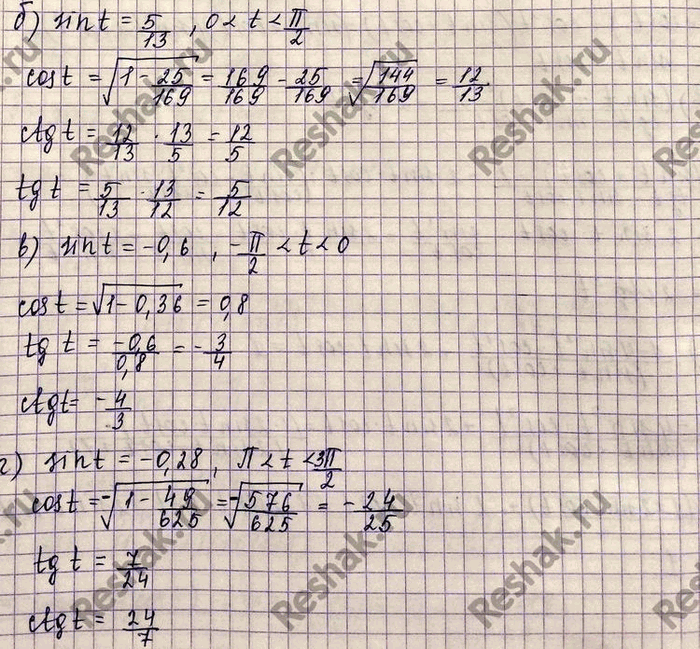 б) sin t = 5/13 , 0 < t < π/2
cos t = √(1 - 25/169) = 169/169 - 25/169 = √(144/169) = 12/13
ctg t = 12/13 · 13/5 = 12/5
tg t = 5/13 · 13/12 = 5/12
в) sin t = -0,6 , -π/2 < t < 0
cos t = √(1-0,36) = 0,8
tg t = -0,6/0,8 = -3/4
ctg t = -4/3
г) sin t = -0,28, π < t < 3π/2
cos t = -√(1 - 49/625) = -√(576/625) = -24/25
tg t = 7/24
ctg t = 24/7
Reshak.ru
Reshak.ru
Reshak.ru
Reshak.ru
Reshak.ru